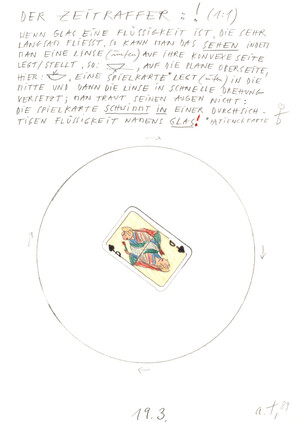 DER ZEITRAFFER : ! (1:1)
WENN GLAS EINE FLÜSSIGKEIT IST, DIE SEHR
LANGSAM FLIESST, SO KANN MAN DAS SEHEN INDEM
MAN EINE LINSE (unten) AUF IHRE KONVEXE SEITE
LEGT/STELLT, SO: , AUF DIE PLANE OBERSEITE,
HIER: , EINE SPIELKARTE* LEGT (unten) IN DIE
MITTE UND DANN DIE LINSE IN SCHNELLE DREHUNG
VERSETZT; MAN TRAUT SEINEN AUGEN NICHT:
DIE SPIELKARTE SCHWIMMT IN EINER DURCHSICH-
TIGEN FLÜSSIGKEIT NAMENS GLAS! *PATIENCEKARTE
Q
Q
19.3.
a.t., 89